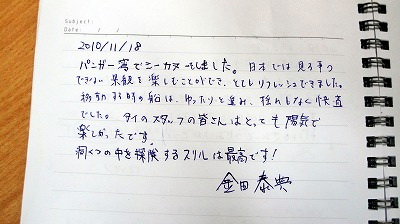 Subject:
Date: / /
2010/11/18
パンガー湾でシーカヌーをしました。日本では見る事の
できない景観を楽しむことができ、とてもリフレッシュできました。
移動する時の船は、ゆったりと進み、揺れもなく快適
でした。タイのスタッフの皆さんはとっても陽気で
楽しかったです。
洞くつの中を探険するスリルは最高です！
金田 泰典